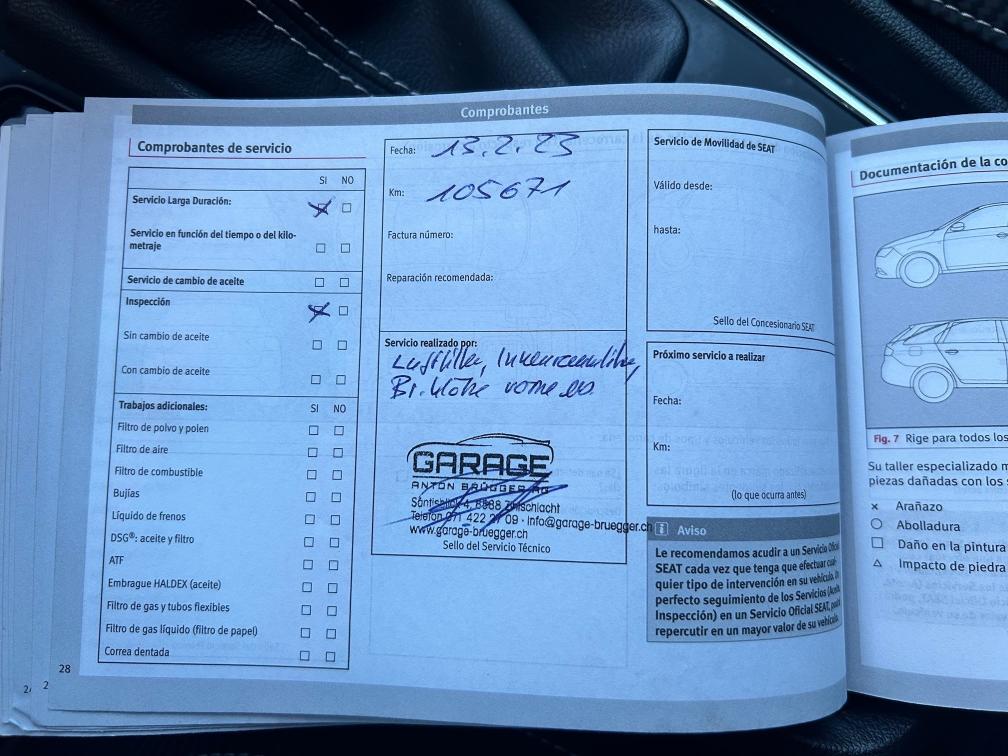 Comprobantes
Comprobantes de servicio
SI NO
Servicio Larga Duración:
Servicio en función del tiempo o del kilo-
metraje
Servicio de cambio de aceite
Inspección
Sin cambio de aceite
Con cambio de aceite
Trabajos adicionales: SI NO
Filtro de polvo y polen
Filtro de aire
Filtro de combustible
Bujías
Líquido de frenos
DSG®: aceite y filtro
ATF
Embrague HALDEX (aceite)
Filtro de gas y tubos flexibles
Filtro de gas líquido (filtro de papel)
Correa dentada
28
Fecha: 13.2.23
Km: 105671
Factura número:
Reparación recomendada:
Servicio realizado por:
Luftfilter,
Br. Klötze vorne
GARAGE
ANTON BRÜGGER AG
Telefon 071 422 09 - info@garage-bruegger.ch
www.garage-bruegger.ch
Sello del Servicio Técnico
Servicio de Movilidad de SEAT
Válido desde:
hasta:
Sello del Concesionario SEAT
Próximo servicio a realizar
Fecha:
Km:
(lo que ocurra antes)
i Aviso
Le recomendamos acudir a un Servicio Oficial
SEAT cada vez que tenga que efectuar cual-
quier tipo de intervención en su vehículo. Un
perfecto seguimiento de los Servicios (Aceite
Inspección) en un Servicio Oficial SEAT, puede
repercutir en un mayor valor de su vehículo.
Documentación de la co
Fig. 7 Rige para todos los
Su taller especializado m
piezas dañadas con los s
× Arañazo
○ Abolladura
□ Daño en la pintura
△ Impacto de piedra